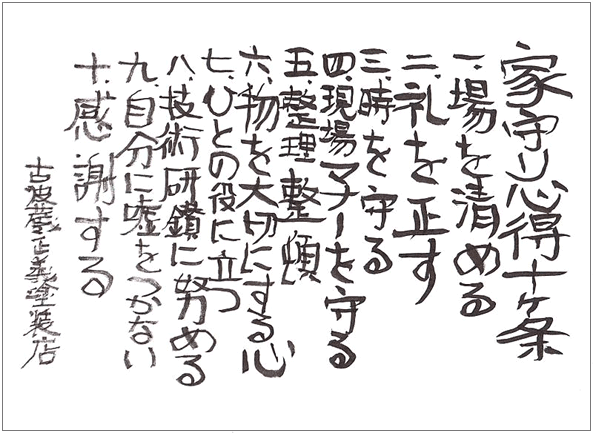 家守り心得十ヶ条
一、場を清める
二、礼を正す
三、時を守る
四、現場マナーを守る
五、整理整頓
六、物を大切にする心
七、ひとの役に立つ
八、技術研鑽に努める
九、自分に嘘をつかない
十、感謝する
正義塗装店